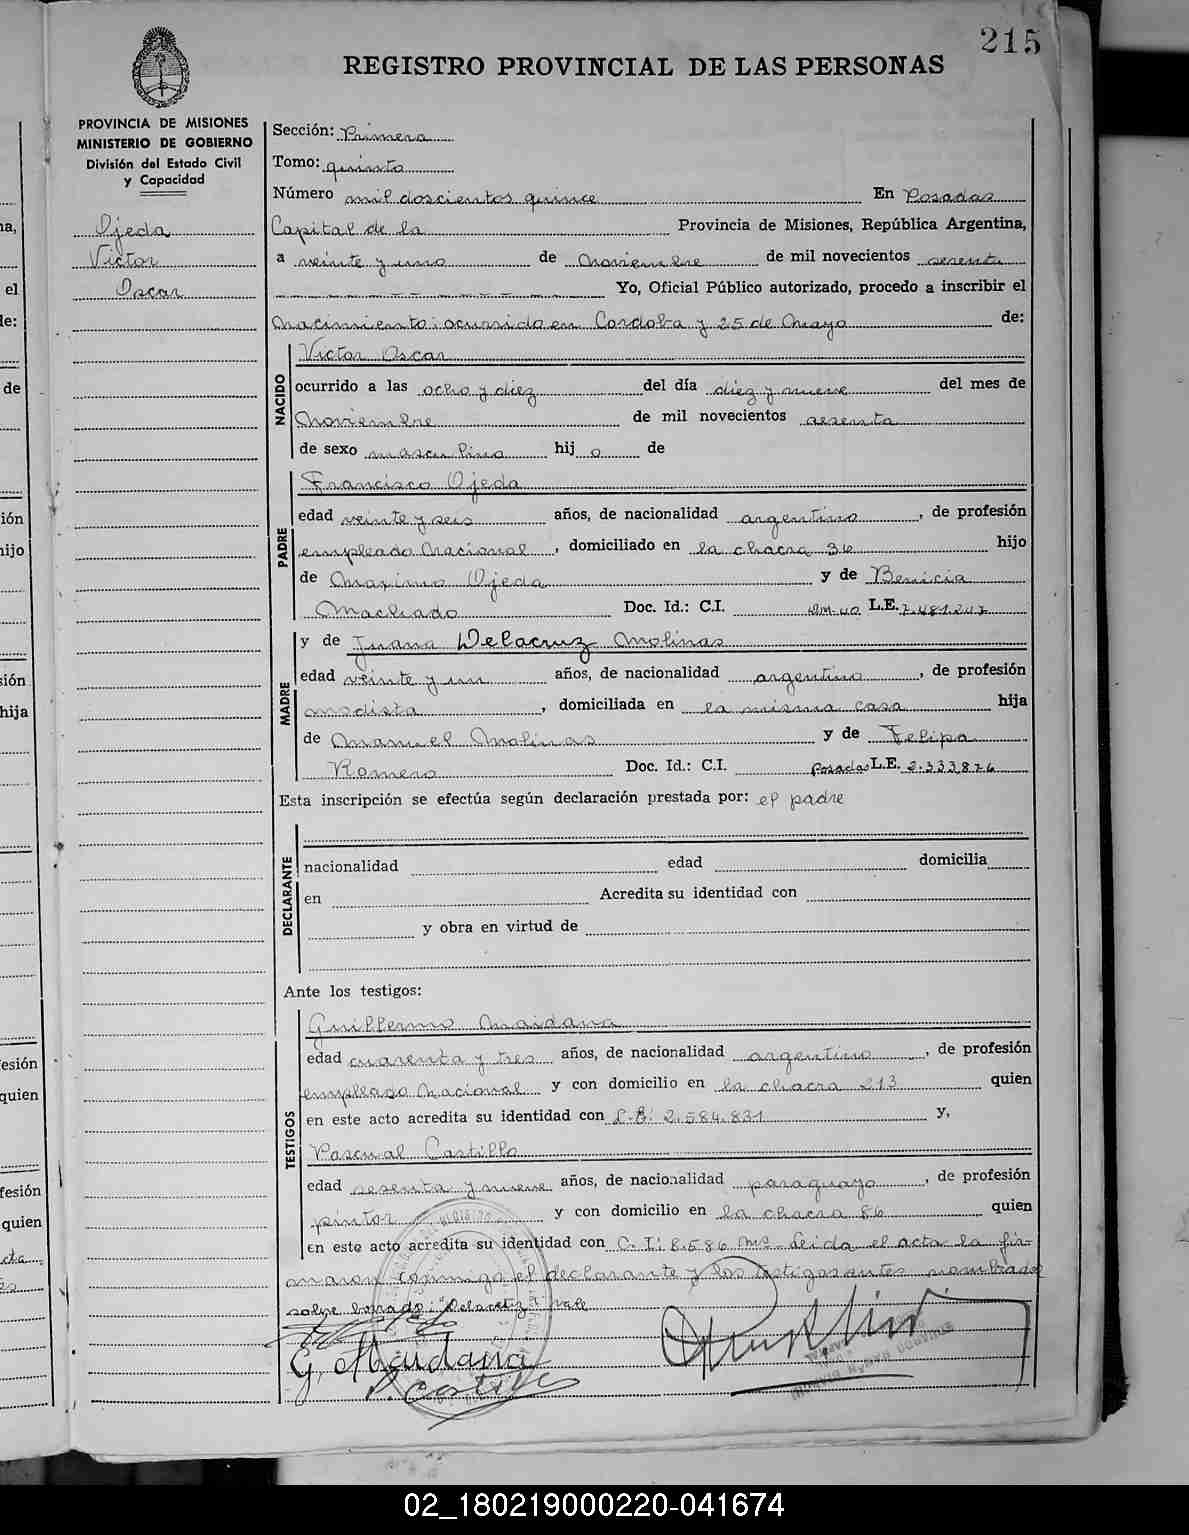 215
REGISTRO PROVINCIAL DE LAS PERSONAS
PROVINCIA DE MISIONES
MINISTERIO DE GOBIERNO
División del Estado Civil
y Capacidad
Ojeda
Victor
Oscar
Sección: Primera
Tomo: quinto
Número mil doscientos quince En Posadas
Capital de la Provincia de Misiones, República Argentina,
a veinte y uno de Noviembre de mil novecientos sesenta
Yo, Oficial Público autorizado, procedo a inscribir el
Nacimiento: ocurrido en Cordoba y 25 de Mayo de:
NACIDO
Victor Oscar
ocurrido a las ocho y diez del día diez y nueve del mes de
Noviembre de mil novecientos sesenta
de sexo masculino hijo de
PADRE
Francisco Ojeda
edad veinte y seis años, de nacionalidad argentino, de profesión
empleado Nacional, domiciliado en la chacra 36 hijo
de Maximo Ojeda y de Benicia
Machado Doc. Id.: C.I. L.E. 7.481.247
MADRE
y de Juana Delacruz Molinas
edad veinte y un años, de nacionalidad argentino, de profesión
modista, domiciliada en la misma casa hija
de Manuel Molinas y de Felipa
Romero Doc. Id.: C.I. Posadas L.E. 2.333.876
Esta inscripción se efectúa según declaración prestada por: el padre
DECLARANTE
nacionalidad edad domicilia
en Acredita su identidad con
y obra en virtud de
Ante los testigos:
TESTIGOS
Guillermo Maidana
edad cuarenta y tres años, de nacionalidad argentino, de profesión
empleado Nacional y con domicilio en la chacra 213 quien
en este acto acredita su identidad con L.E: 2.584.831 y,
Pascual Castillo
edad sesenta y nueve años, de nacionalidad paraguayo, de profesión
pintor y con domicilio en la chacra 86 quien
en este acto acredita su identidad con C.I: 8.586 Ms. Leida el acta la fir-
maron conmigo el declarante y los testigos antes nombrados
sobre borrado: "Delacruz" vale
G. Maidana
P Castillo
02_180219000220-041674